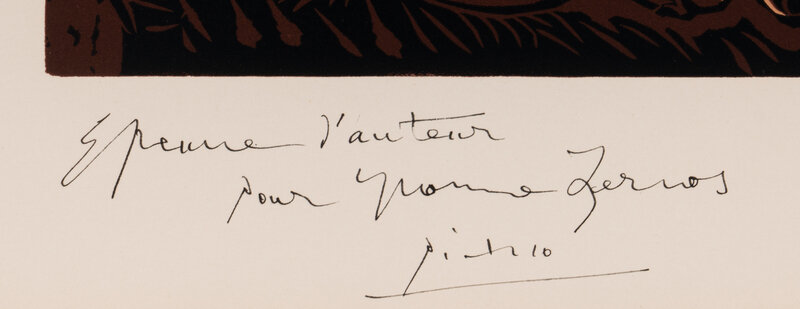 Epreuve d'auteur
pour Yvonne Zervos
Picasso